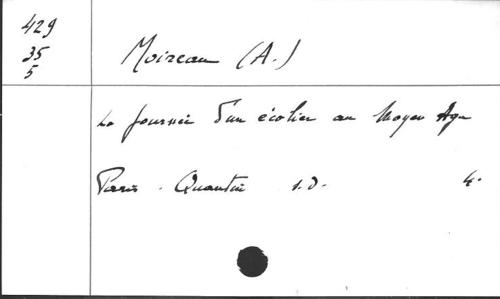 429
35
5
Moireau (A.)
La journée d'un écolier au Moyen Age
Paris. Quantin s.d. 4°